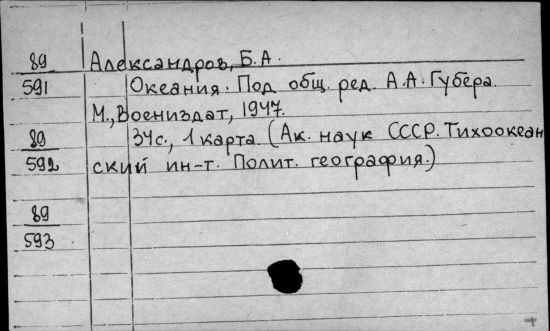 89 Александров, Б.А.
591 Океания. Под общ. ред. А.А. Губера.
М., Воениздат, 1947.
89 34с., 1 карта. (Ак. наук СССР. Тихоокеан
592 ский ин-т. Полит. география.)
89
593